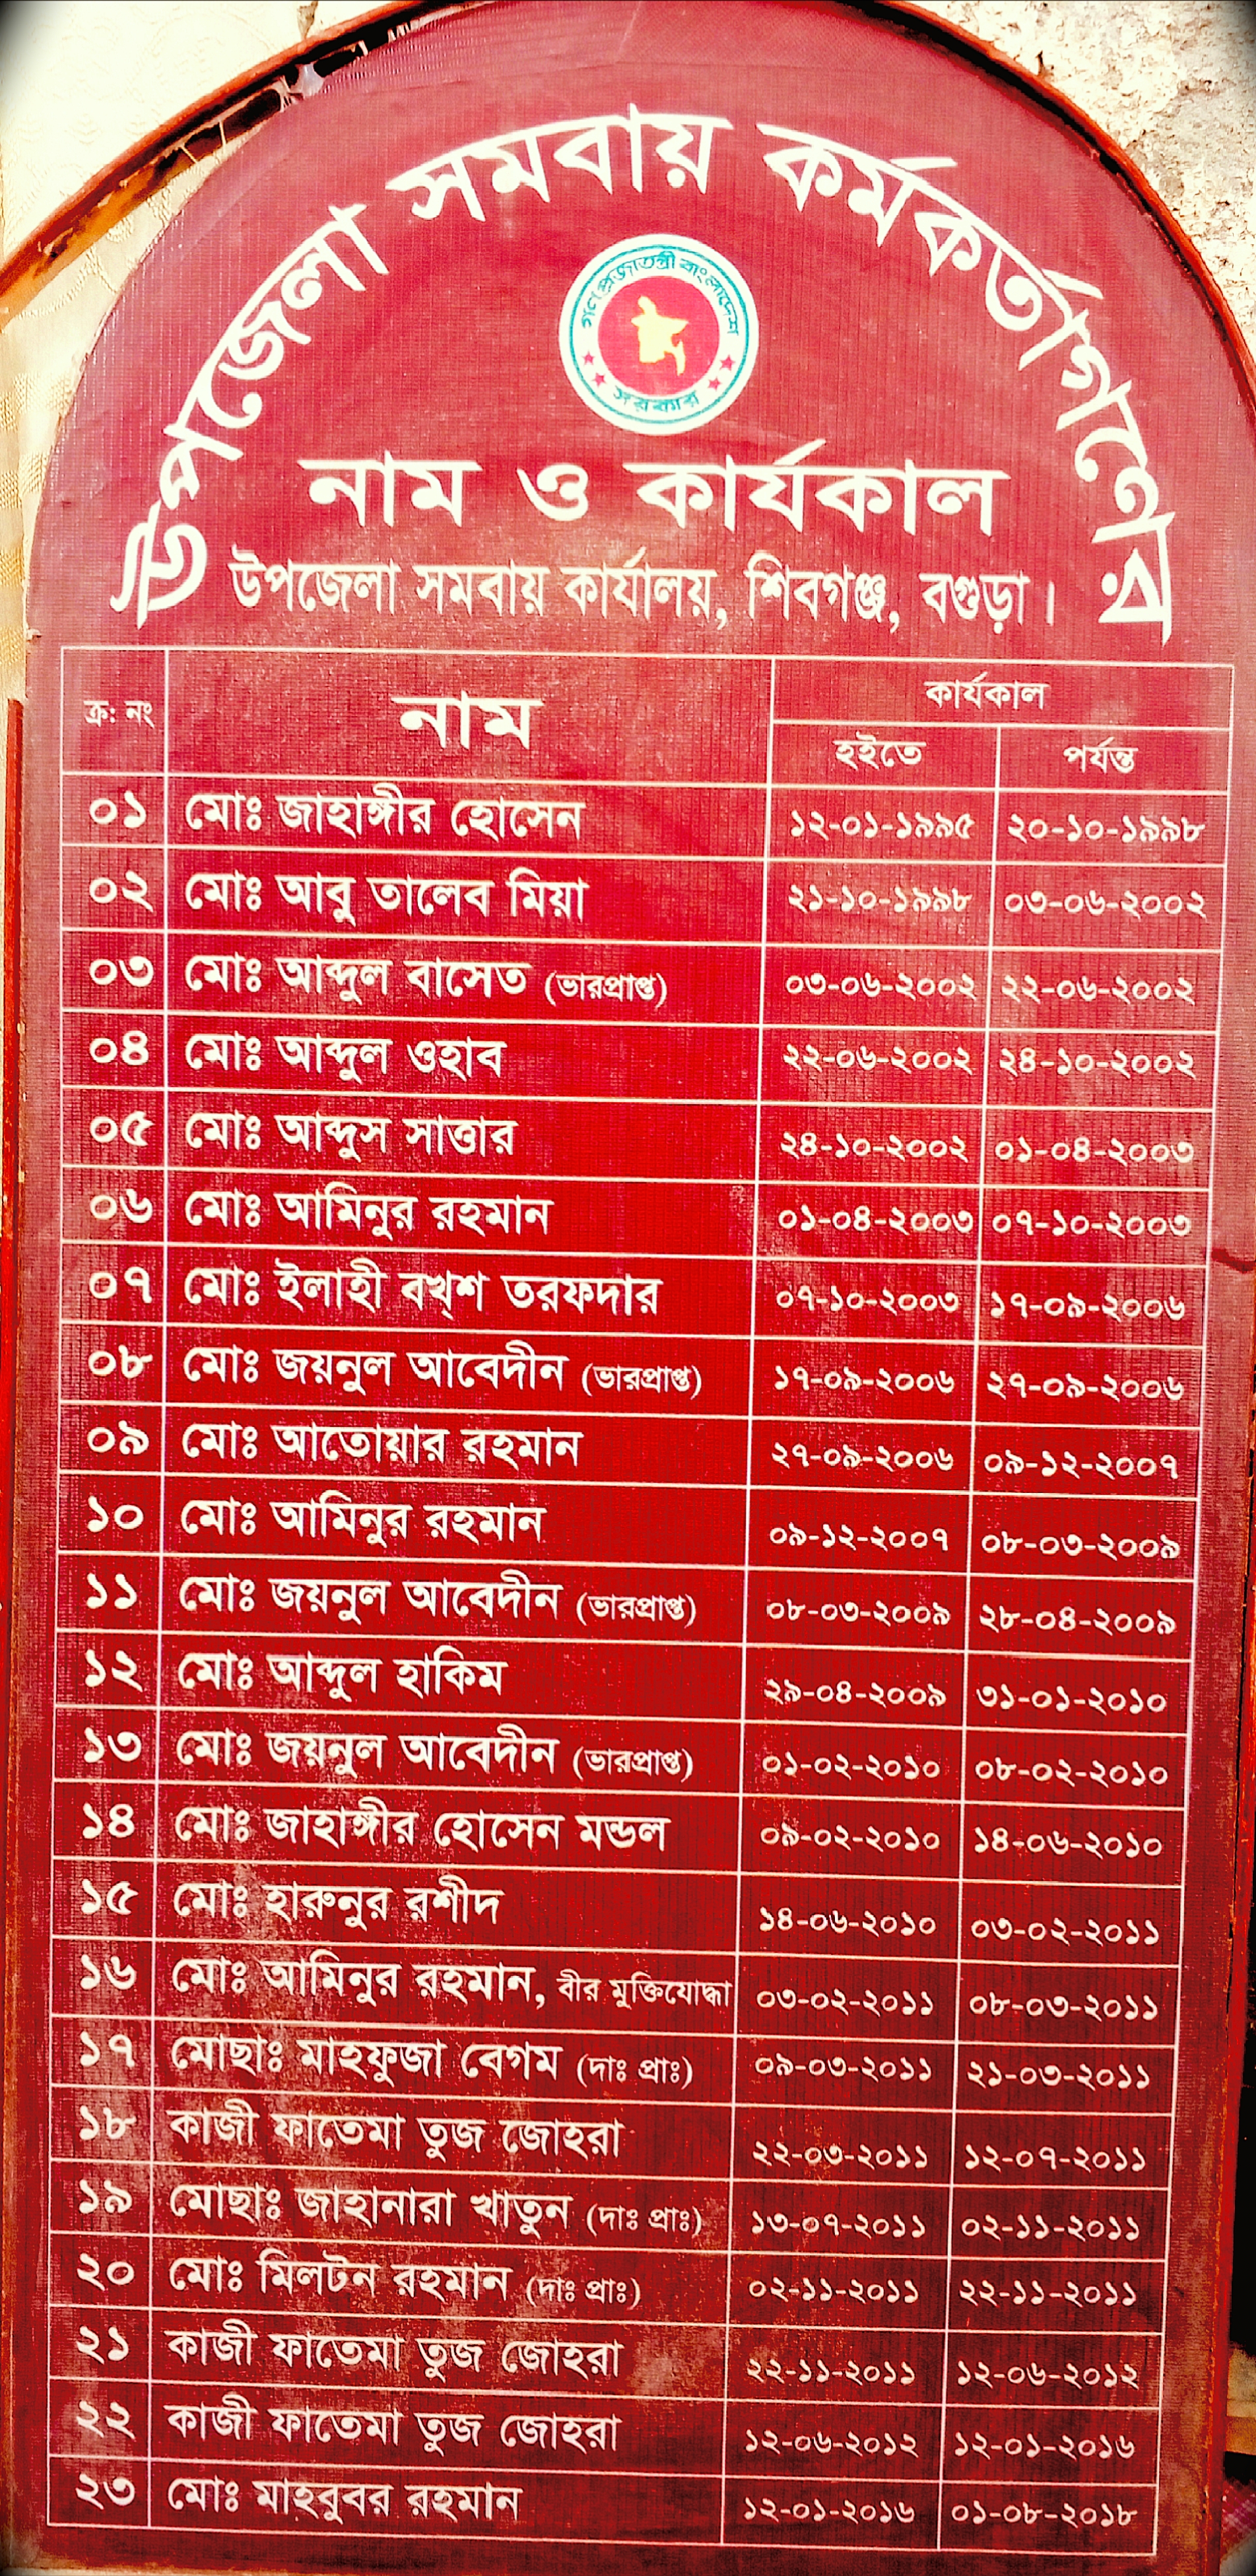 উপজেলা সমবায় কর্মকর্তাগণের
গণ প্রজাতন্ত্রী বাংলাদেশ
সরকার
নাম ও কার্যকাল
উপজেলা সমবায় কার্যালয়, শিবগঞ্জ, বগুড়া।
ক্র: নং নাম কার্যকাল
হইতে পর্যন্ত
০১ মোঃ জাহাঙ্গীর হোসেন ১২-০১-১৯৯৫ ২০-১০-১৯৯৮
০২ মোঃ আবু তালেব মিয়া ২১-১০-১৯৯৮ ০৩-০৬-২০০২
০৩ মোঃ আব্দুল বাসেত (ভারপ্রাপ্ত) ০৩-০৬-২০০২ ২২-০৬-২০০২
০৪ মোঃ আব্দুল ওহাব ২২-০৬-২০০২ ২৪-১০-২০০২
০৫ মোঃ আব্দুস সাত্তার ২৪-১০-২০০২ ০১-০৪-২০০৩
০৬ মোঃ আমিনুর রহমান ০১-০৪-২০০৩ ০৭-১০-২০০৩
০৭ মোঃ ইলাহী বখ্শ তরফদার ০৭-১০-২০০৩ ১৭-০৯-২০০৬
০৮ মোঃ জয়নুল আবেদীন (ভারপ্রাপ্ত) ১৭-০৯-২০০৬ ২৭-০৯-২০০৬
০৯ মোঃ আতোয়ার রহমান ২৭-০৯-২০০৬ ০৯-১২-২০০৭
১০ মোঃ আমিনুর রহমান ০৯-১২-২০০৭ ০৮-০৩-২০০৯
১১ মোঃ জয়নুল আবেদীন (ভারপ্রাপ্ত) ০৮-০৩-২০০৯ ২৮-০৪-২০০৯
১২ মোঃ আব্দুল হাকিম ২৯-০৪-২০০৯ ৩১-০১-২০১০
১৩ মোঃ জয়নুল আবেদীন (ভারপ্রাপ্ত) ০১-০২-২০১০ ০৮-০২-২০১০
১৪ মোঃ জাহাঙ্গীর হোসেন মন্ডল ০৯-০২-২০১০ ১৪-০৬-২০১০
১৫ মোঃ হারুনুর রশীদ ১৪-০৬-২০১০ ০৩-০২-২০১১
১৬ মোঃ আমিনুর রহমান, বীর মুক্তিযোদ্ধা ০৩-০২-২০১১ ০৮-০৩-২০১১
১৭ মোছাঃ মাহফুজা বেগম (দাঃ প্রাঃ) ০৯-০৩-২০১১ ২১-০৩-২০১১
১৮ কাজী ফাতেমা তুজ জোহরা ২২-০৩-২০১১ ১২-০৭-২০১১
১৯ মোছাঃ জাহানারা খাতুন (দাঃ প্রাঃ) ১৩-০৭-২০১১ ০২-১১-২০১১
২০ মোঃ মিলটন রহমান (দাঃ প্রাঃ) ০২-১১-২০১১ ২২-১১-২০১১
২১ কাজী ফাতেমা তুজ জোহরা ২২-১১-২০১১ ১২-০৬-২০১২
২২ কাজী ফাতেমা তুজ জোহরা ১২-০৬-২০১২ ১২-০১-২০১৬
২৩ মোঃ মাহবুবর রহমান ১২-০১-২০১৬ ০১-০৮-২০১৮